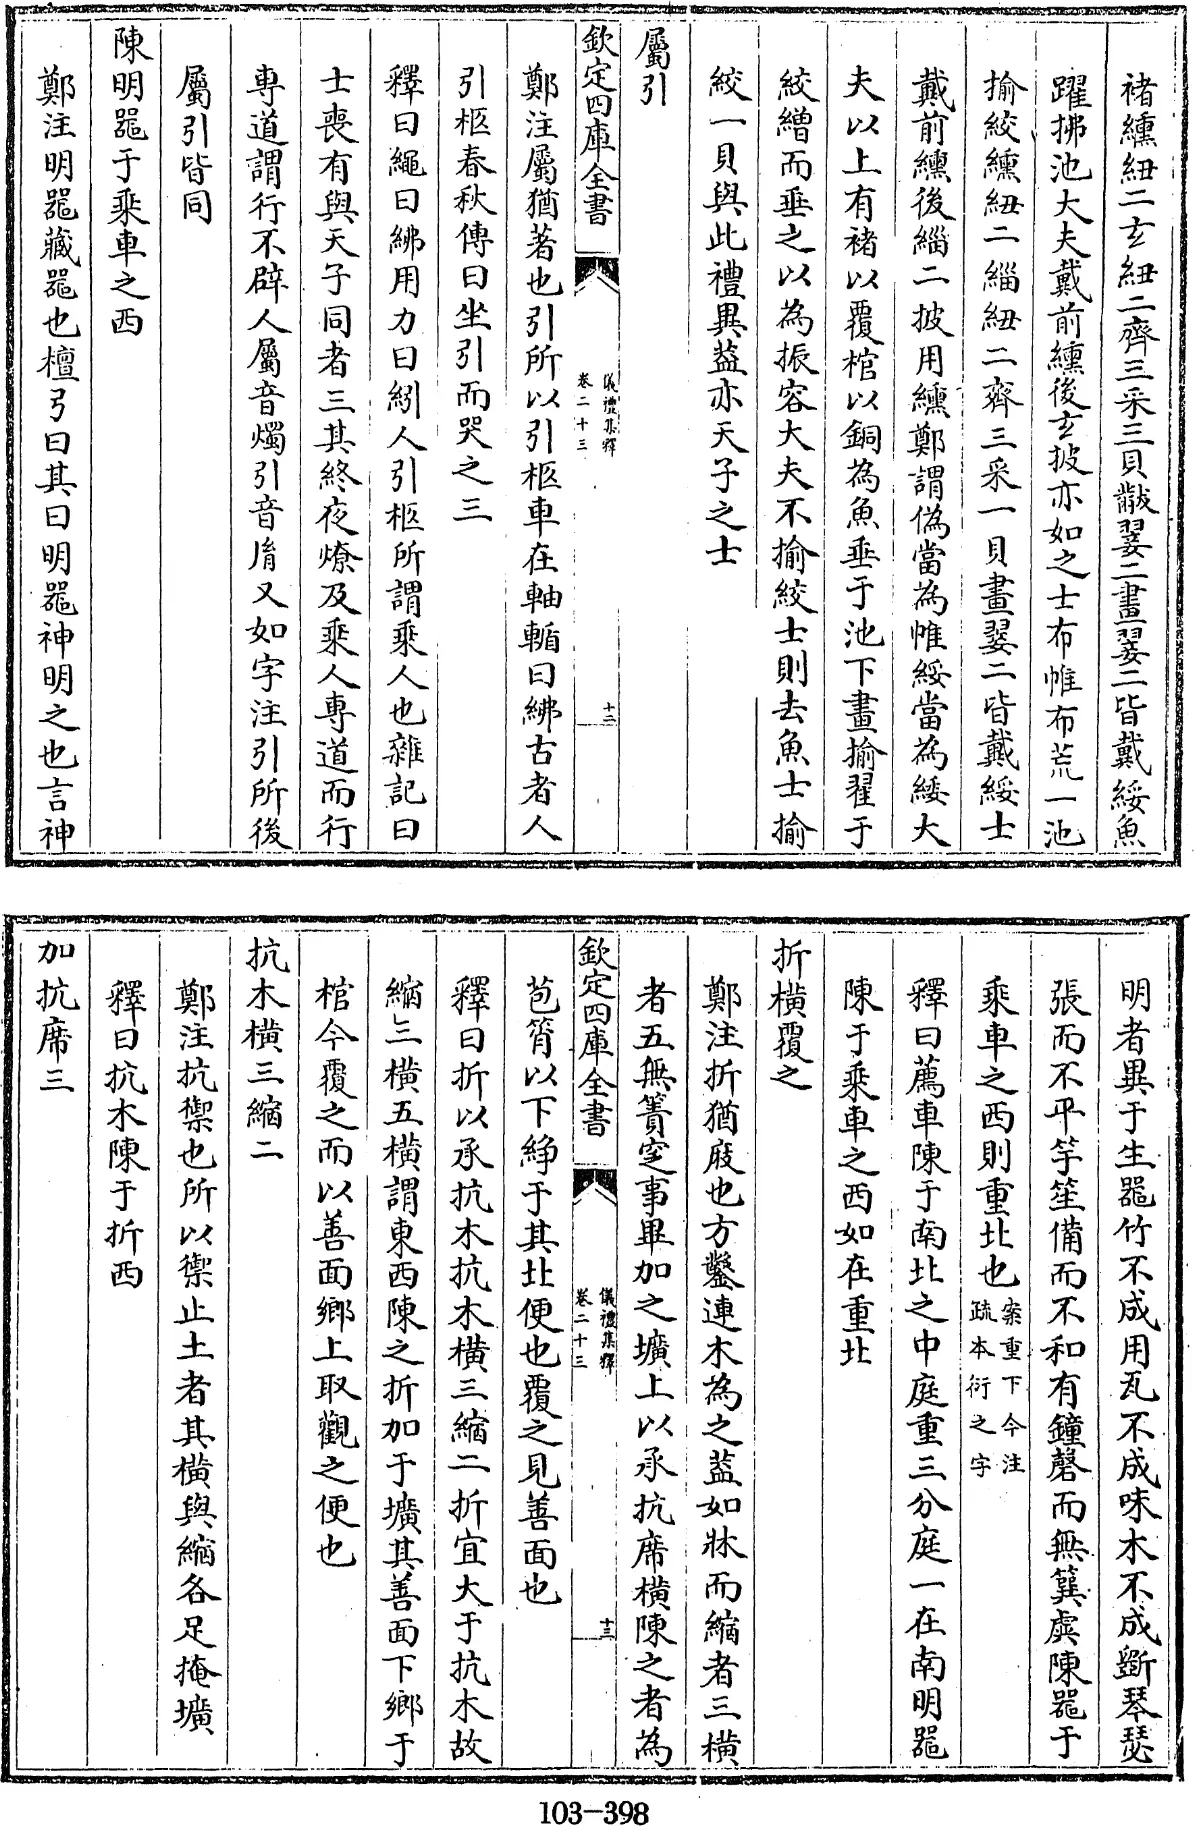 褚纁紐二玄紐二齊三采三貝黻翣二畫翣二皆戴綏魚
躍拂池大夫戴前纁後玄披亦如之士布帷布荒一池
揄絞纁紐二緇紐二齊三采一貝畫翣二皆戴綏士
戴前纁後緇二披用纁鄭謂偽當為帷綏當為緌大
夫以上有褚以覆棺以銅為魚垂于池下畫揄翟于
絞繒而垂之以為振容大夫不揄絞士則去魚士揄
絞一貝與此禮異葢亦天子之士
屬引
欽定四庫全書
儀禮集釋
卷二十三
十二
鄭注屬猶著也引所以引柩車在軸輴曰紼古者人
引柩春秋傳曰坐引而哭之三
釋曰繩曰紼用力曰紖人引柩所謂乘人也雜記曰
士喪有與天子同者三其終夜燎及乘人專道而行
專道謂行不辟人屬音燭引音胤又如字注引所後
屬引皆同
陳明器于乘車之西
鄭注明器藏器也檀弓曰其曰明器神明之也言神
明者異于生器竹不成用瓦不成味木不成斵琴瑟
張而不平竽笙備而不和有鐘磬而無簨虡陳器于
乘車之西則重北也案重下今注
疏本衍之字
釋曰薦車陳于南北之中庭重三分庭一在南明器
陳于乘車之西如在重北
折橫覆之
鄭注折猶庪也方鑿連木為之葢如牀而縮者三橫
者五無簀窆事畢加之壙上以承抗席橫陳之者為
欽定四庫全書
儀禮集釋
卷二十三
十三
苞筲以下綪于其北便也覆之見善面也
釋曰折以承抗木抗木橫三縮二折宜大于抗木故
縮三橫五橫謂東西陳之折加于壙其善面下鄉于
棺今覆之而以善面鄉上取觀之便也
抗木橫三縮二
鄭注抗禦也所以禦止土者其橫與縮各足掩壙
釋曰抗木陳于折西
加抗席三
103-398